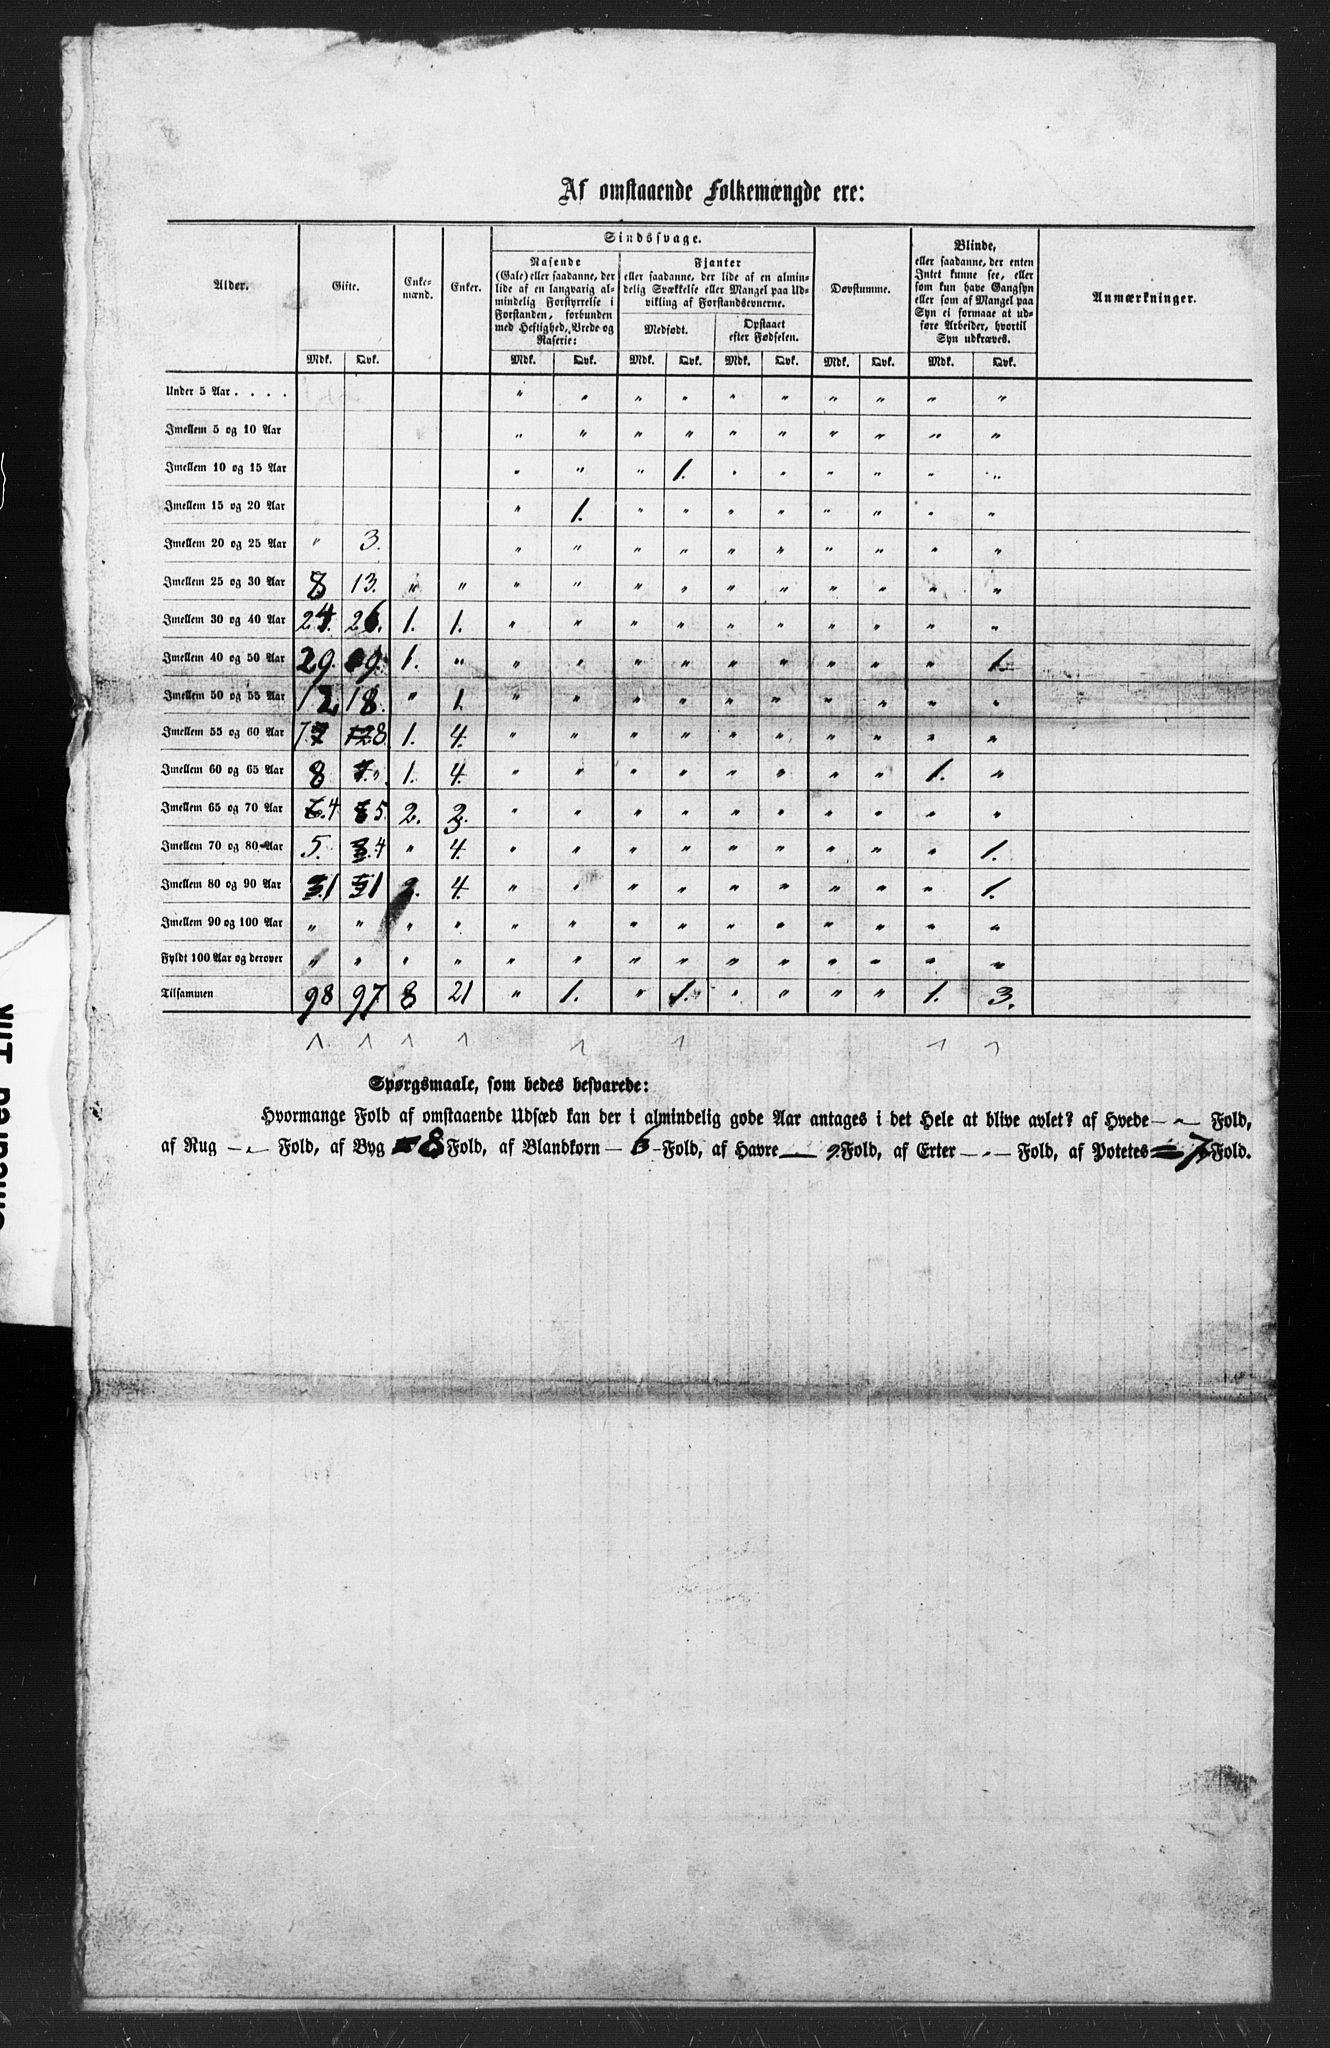 Af omstaaende Folkemængde ere:
Alder. Gifte. Enkemænd. Enker. Sindssvage. Døvstumme. Blinde, Anmærkninger.
Rasende
(Gale) eller saadanne, der
lide af en langvarig al-
mindelig Forstyrrelse i
Forstanden, forbunden
med Heftighed, Vrede og
Raserie:
Fjanter
eller saadanne, der lide af en almin-
delig Svækkelse eller Mangel paa Ud-
vikling af Forstandsevnerne.
Medfødt. Opstaaet
efter Fødselen.
eller saadanne, der enten
Intet kunne see, eller
som kun have Gangsyn
eller som af Mangel paa
Syn ei formaae at ud-
føre Arbeider, hvortil
Syn udkræves.
Mdk. Qvk. Mdk. Qvk. Mdk. Qvk. Mdk. Qvk. Mdk. Qvk. Mdk. Qvk.
Under 5 Aar . . . . " " " " " " " " " "
Imellem 5 og 10 Aar " " " " " " " " " "
Imellem 10 og 15 Aar " " " 1. " " " " " "
Imellem 15 og 20 Aar " 1. " " " " " " " "
Imellem 20 og 25 Aar " 3. " " " " " " " " " "
Imellem 25 og 30 Aar 8 13. " " " " " " " " " " " "
Imellem 30 og 40 Aar 24. 26. 1. 1. " " " " " " " " " "
Imellem 40 og 50 Aar 29. 9. 1. " " " " " " " " " " 1.
Imellem 50 og 55 Aar 12, 18. " 1. " " " " " " " " " "
Imellem 55 og 60 Aar 7 8. 1. 4. " " " " " " " " " "
Imellem 60 og 65 Aar 8 1. 4. " " " " " " " " 1. "
Imellem 65 og 70 Aar 4 5. 2. " " " " " " " " " "
Imellem 70 og 80 Aar 5. 4 " 4. " " " " " " " " " 1.
Imellem 80 og 90 Aar 1 1 2. 4. " " " " " " " " " 1.
Imellem 90 og 100 Aar " " " " " " " " " " " " " "
Fyldt 100 Aar og derover " " " " " " " " " " " " " "
Tilsammen 98 97 8 21 " 1. " 1. " " " " 1. 3.
Spørgsmaale, som bedes besvarede:
Hvormange Fold af omstaaende Udsæd kan der i almindelig gode Aar antages i det Hele at blive avlet? af Hvede — " — Fold,
af Rug — " — Fold, af Byg 8 Fold, af Blandkorn — 6 — Fold, af Havre — 9. Fold, af Erter — " — Fold, af Potetes 7, Fold.